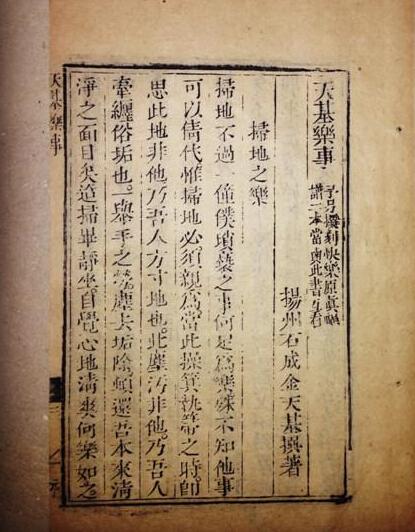 天基樂事
予另撰刻快樂原真
譜二本當與此書互看
揚州石成金天基撰著
掃地之樂
掃地不過一僮僕瑣褻之事何足為樂殊不知他事
可以倩代惟掃地必須親為當此操箕執帚之時即
思此地非他乃吾人方寸地也此塵污非他乃吾人
牽纏俗垢也。一舉手之勞塵去垢除頓還吾本來清
淨之面目矣迨掃畢靜坐自覺心地清爽何樂如之
天基樂事
三